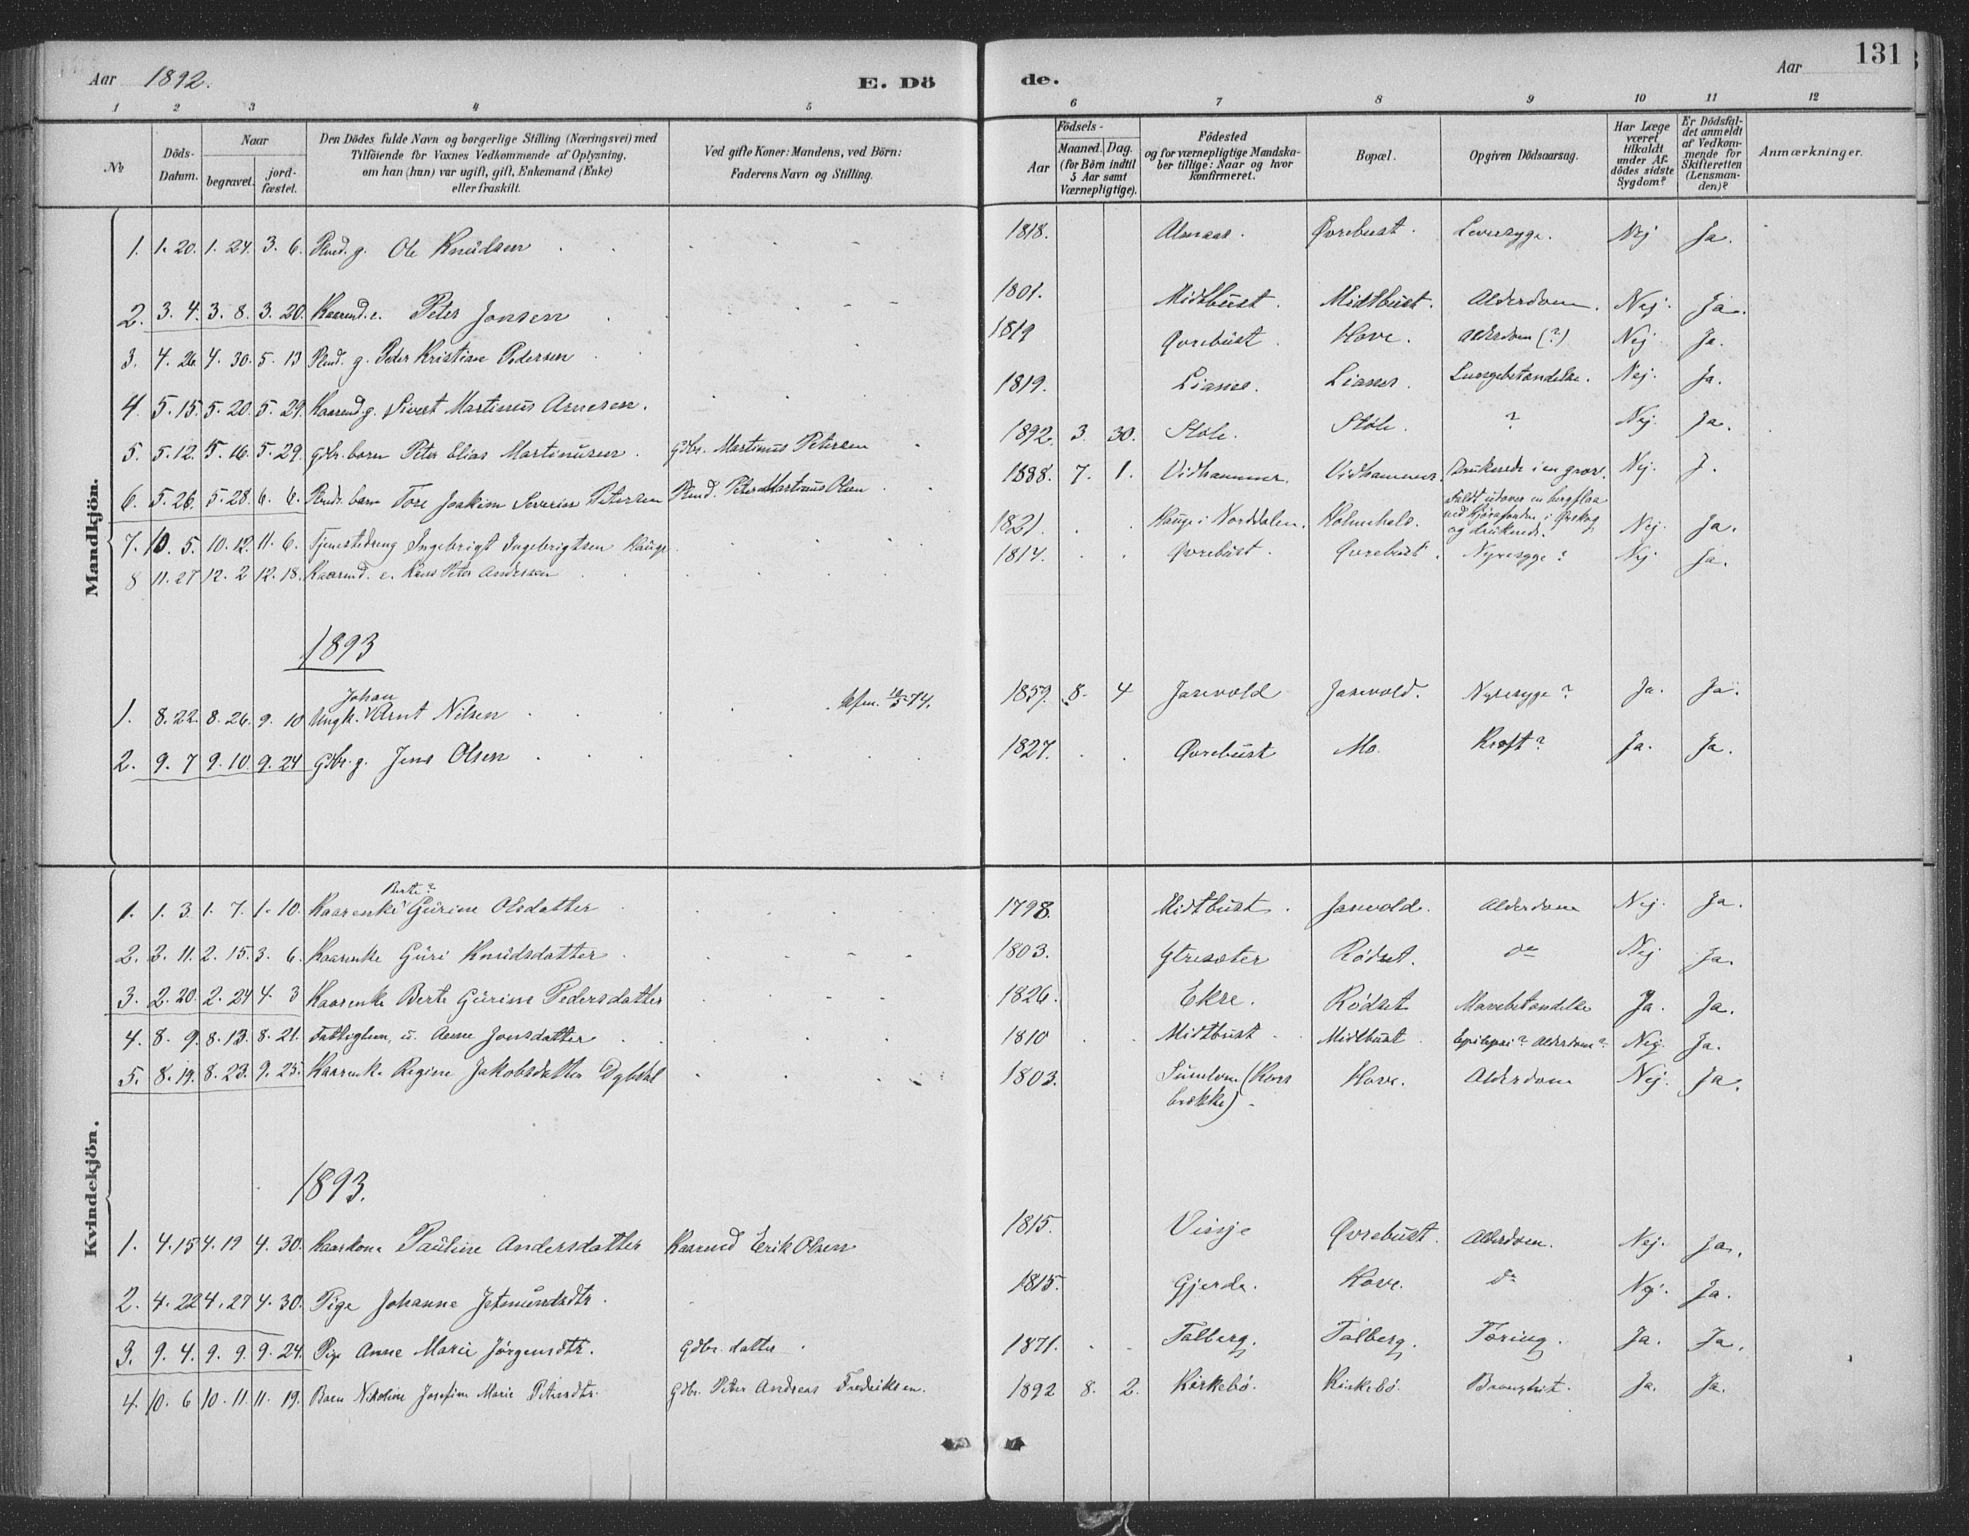 131
Aar 1892. E. Dö de. Aar
1 2 3 4 5 6 7 8 9 10 11 12
No
Döds-Datum.
Naar
begravet.
jord-fæstet.
Den Dödes fulde Navn og borgerlige Stilling (Næringsvei) med
Tilföiende for Voxnes Vedkommende af Oplysning,
om han (hun) var ugift, gift, Enkemand (Enke)
eller fraskilt.
Ved gifte Koner: Mandens, ved Börn:
Faderens Navn og Stilling.
Födsels-
Aar
Maaned. Dag.
(for Börn indtil
5 Aar samt
Værnepligtige).
Födested
og for værnepligtige Mandska-
ber tillige: Naar og hvor
Konfirmeret.
Bopæl.
Opgiven Dödsaarsag.
Har Læge
været
tilkaldt
under Af-
dödes sidste
Sygdom?
Er Dödsfal-
det anmeldt
af Vedkom-
mende for
Skifteretten
(Lensman-
den)?
Anmærkninger.
Mandkjön.
1. 1. 20. 1. 24. 3. 6. g. Ole Knudsen 1818. Almaas. Øvrebust. Leversyge. Nej Ja.
2. 3. 4. 3. 8. 3. 20. Kaarmd. e. Peter Jonsen 1801. Midtbust. Midtbust. Alderdom. Nej. Ja.
3. 4. 26. 4. 30. 5. 13 g. Peter Kristian Pedersen 1819 Øvrebust. Hove. Alderdom (?) Nej. Ja.
4. 5. 15. 5. 20. 5. 29. Kaarmd. g. Sivert Martinus Arnesen. 1819. Lianes. Lianes. Lungebetændelse. Nej. Ja.
5. 5. 12. 5. 16. 5. 29. Gdbr. barn Peter Elias Martinusen. Gdbr. Martinus Petersen 1892. 3. 30. Støle. Støle. ? Nej. Ja.
6. 5. 26. 5. 28. 6. 6. barn Tore Joakim Severin Petersen Peter Martinus Olsen 1888. 7. 1. Vidhammer. Vidhammer. Druknede i en Nej. J.
7. 10. 5. 10. 12. 11. 6. Tjenestedreng Ingebrigt Ingebrigtsen Hauge 1821. Hauge i Norddalen. Holmhals. Faldt udover en bergflaa
ved i Ørskog
og druknede. Nej. Ja.
8 11. 27 12. 2 12. 18. Kaarmd. e. Hans Peter Andersen 1814. Øvrebust. Øvrebust. Nyresyge? Nej Ja.
1893
1. 8. 22. 8. 26. 9. 10 Ungk. Johan Arnt Nilsen Kfm. 1859. 8. 4 Jarevold Jarevold. Nyresyge? Ja. Ja.
2. 9. 7 9. 10. 9. 24 Gdbr. g. Jens Olsen 1827. Øvrebust Mo. Kræft? Ja. Ja.
Kvindekjön.
1. 1. 3. 1. 7. 1. 10. Kaarenke Berte? Gürine Olsdatter 1798. Midtbust. Jarevold. Alderdom Nej. Ja.
2. 2. 11. 2. 15. 3. 6. Kaarenke Güri Knudsdatter. 1803. Rødset. do Nej Ja.
3. 2. 20. 2. 24 4. 3 Kaarenke Berte Gürine Pedersdatter 1826. Ekre. Rødset Mavebetændelse Ja. Ja.
4. 8. 9. 8. 13. 8. 21. Fattiglem, u. Anne Jonsdatter 1810 Midtbust. Midtbust. Epilepsi? Alderdom? Nej. Ja.
5. 8. 19. 8. 23. 9. 25. Kaarenke Regine Jakobsdatter Dybdal 1803. (Kors
brekke). Hove. Alderdom Nej. Ja.
1893.
1. 4. 15 4. 19 4. 30. Kaarkone Pauline Andersdatter Kaarmd Erik Olsen 1815. Vissje Øvrebust. Alderdom. Nej. Ja.
2. 4. 22 4. 27 4. 30. Pige Johanne Jetmundsdtr. 1815. Gjerde. Hove. do Nej. Ja.
3. 9. 4. 9. 9. 9. 24. Pige Anne Marie Jørgensdtr. Gdbr. datter 1871. Talberg. Talberg. Tæring. Ja. Ja.
4. 10. 6 10. 11 11. 19. Barn Nikoline Josefine Marie Petersdtr. Gdbr. Peter Andreas Fredriksen. 1892 8. 2. Kirkebø. Kirkebø. Bronchit. Ja. Ja.